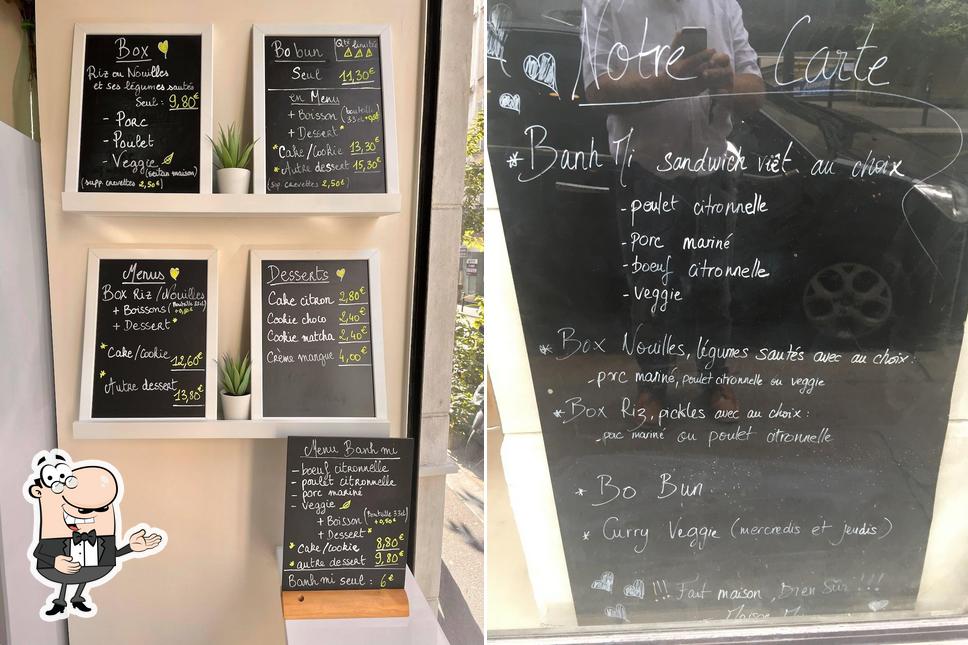 Box
Riz ou Nouilles
et ses légumes sautés
Seul : 9,80€
- Porc
- Poulet
- Veggie
(seitan maison)
(supp. crevettes 2,50€)
Bo bun
Qté limitée
Seul 11,30€
en Menu
+ Boisson (bouteille
33cl +0,50€
+ Dessert*
*Cake/cookie 13,30€
*Autre dessert 15,30€
(sup crevettes 2,50€)
Menus
Box Riz / Nouilles
+ Boissons (Bouteille 33cl
+0,50€)
+ Dessert*
*Cake/cookie
12,60€
*Autre dessert
13,80€
Desserts
Cake citron 2,80€
Cookie choco 2,40€
Cookie matcha 2,40€
Crème mangue 4,00€
Menu Banh mi
- boeuf citronnelle
- poulet citronnelle
- porc mariné
- veggie
+ Boisson (Bouteille 33cl
+0,50€
+ Dessert*
*Cake/cookie 8,80€
*autre dessert 9,80€
Banh mi seul : 6€
Notre Carte
* Banh Mi sandwich viêt au choix
- poulet citronnelle
- porc mariné
- boeuf citronnelle
- veggie
* Box Nouilles, légumes sautés avec au choix :
- porc mariné, poulet citronnelle ou veggie
* Box Riz, pickles avec au choix :
- porc mariné ou poulet citronnelle
* Bo Bun
* Curry Veggie (mercredis et jeudis)
!!! Fait maison, Bien Sûr !!!